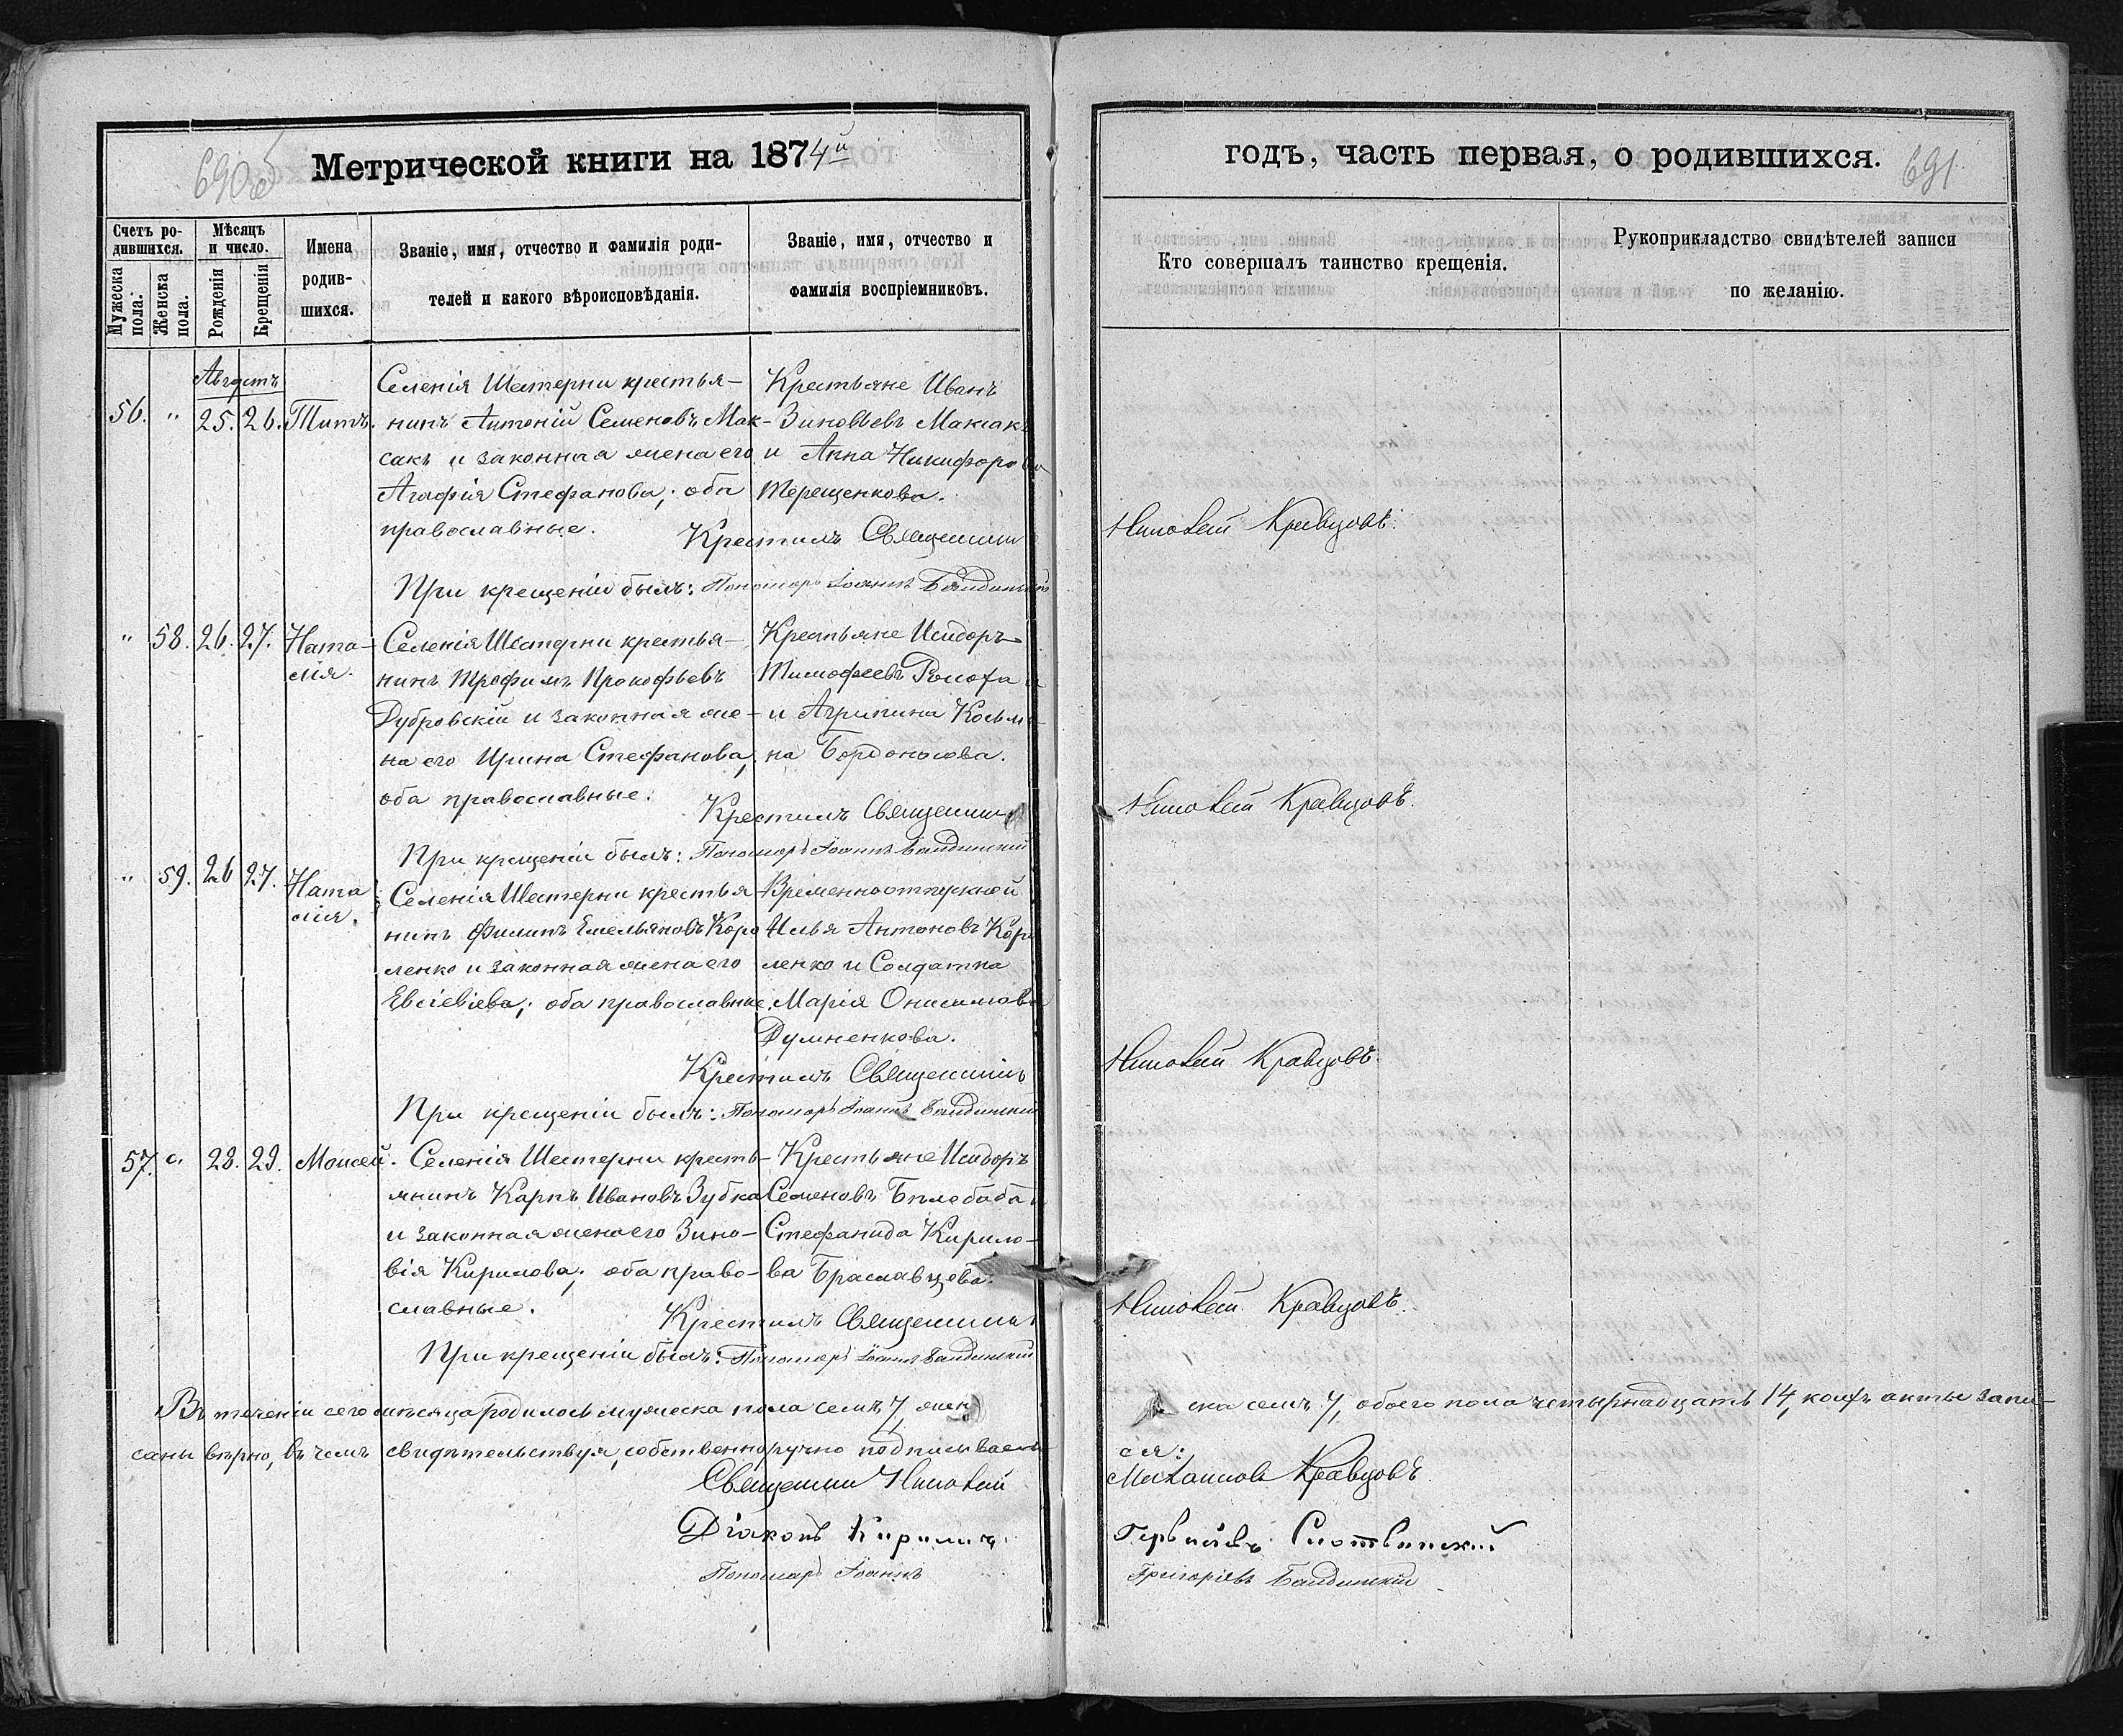 690об
Метрической книги на 1874й
годъ, часть первая, о родившихся.
691
Счетъ ро-
дившихся.
Мужеска пола.
Женска пола.
Мѣсяцъ
и число.
Рожденія
Крещенія
Имена
родив-
шихся.
Званіе, имя, отчество и фамилія роди-
телей и какого вѣроисповѣданія.
Званіе, имя, отчество и
фамилія воспріемниковъ.
Кто совершалъ таинство крещенія.
Рукоприкладство свидѣтелей записи
по желанію.
Августъ
56. " 25. 26. Титъ.
Селенія Шестерни крестья-
нинъ Антоній Семеновъ Мак-
сакъ и законная жена его
Агафія Стефанова; оба
православные.
Крестьяне Иванъ
Зиновьевъ Максакъ
и Анна Никифорова
Терещенкова.
Крестилъ Священникъ
Николай Кравцовъ.
При крещеніи былъ: Пономарь Іоаннъ
" 58. 26. 27. Ната-
лія.
Селенія Шестерни крестья-
нинъ Трофимъ Прокофьевъ
Дубровскій и законная же-
на его Ирина Стефанова,
оба православные.
Крестьяне Исидоръ
Тимофеевъ
и Агрипина Косьми-
на Бордоносова.
Крестилъ Священникъ
Николай Кравцовъ.
При крещеніи былъ: Пономарь Іоаннъ
" 59. 26 27. Ната
лія.
Селенія Шестерни крестья
нинъ Филипъ Емельяновъ Коро
ленко и законная жена его
Евсіевіева; оба православные.
Временноотпускной
Илья Антоновъ Коро
ленко и Солдатка
Марія Онисимова
Думненкова.
Крестилъ Священникъ
Николай Кравцовъ.
При крещеніи былъ: Пономарь Іоаннъ
57. " 28. 29. Моисей.
Селенія Шестерни кресть-
янинъ Карпъ Ивановъ Зубка
и законная жена его Зино-
вія Кирилова; оба право-
славные.
Крестьяне Исидоръ
Семеновъ Бѣлебаба и
Стефанида Кирило-
ва Браславцева.
Крестилъ Священникъ
Николай Кравцовъ.
При крещеніи былъ: Пономарь Іоаннъ
Въ теченіи сего мѣсяца родилось мужеска пола семь 7, жен
ска семь 7, обоего пола четырнадцать 14, коихъ акты запи-
саны вѣрно, въ чемъ свидѣтельствуя, собственноручно подписываем-
ся:
Священникъ Николай Михаиловъ Кравцовъ.
Діаконъ Кирилъ
Пономарь Іоаннъ Григоріевъ